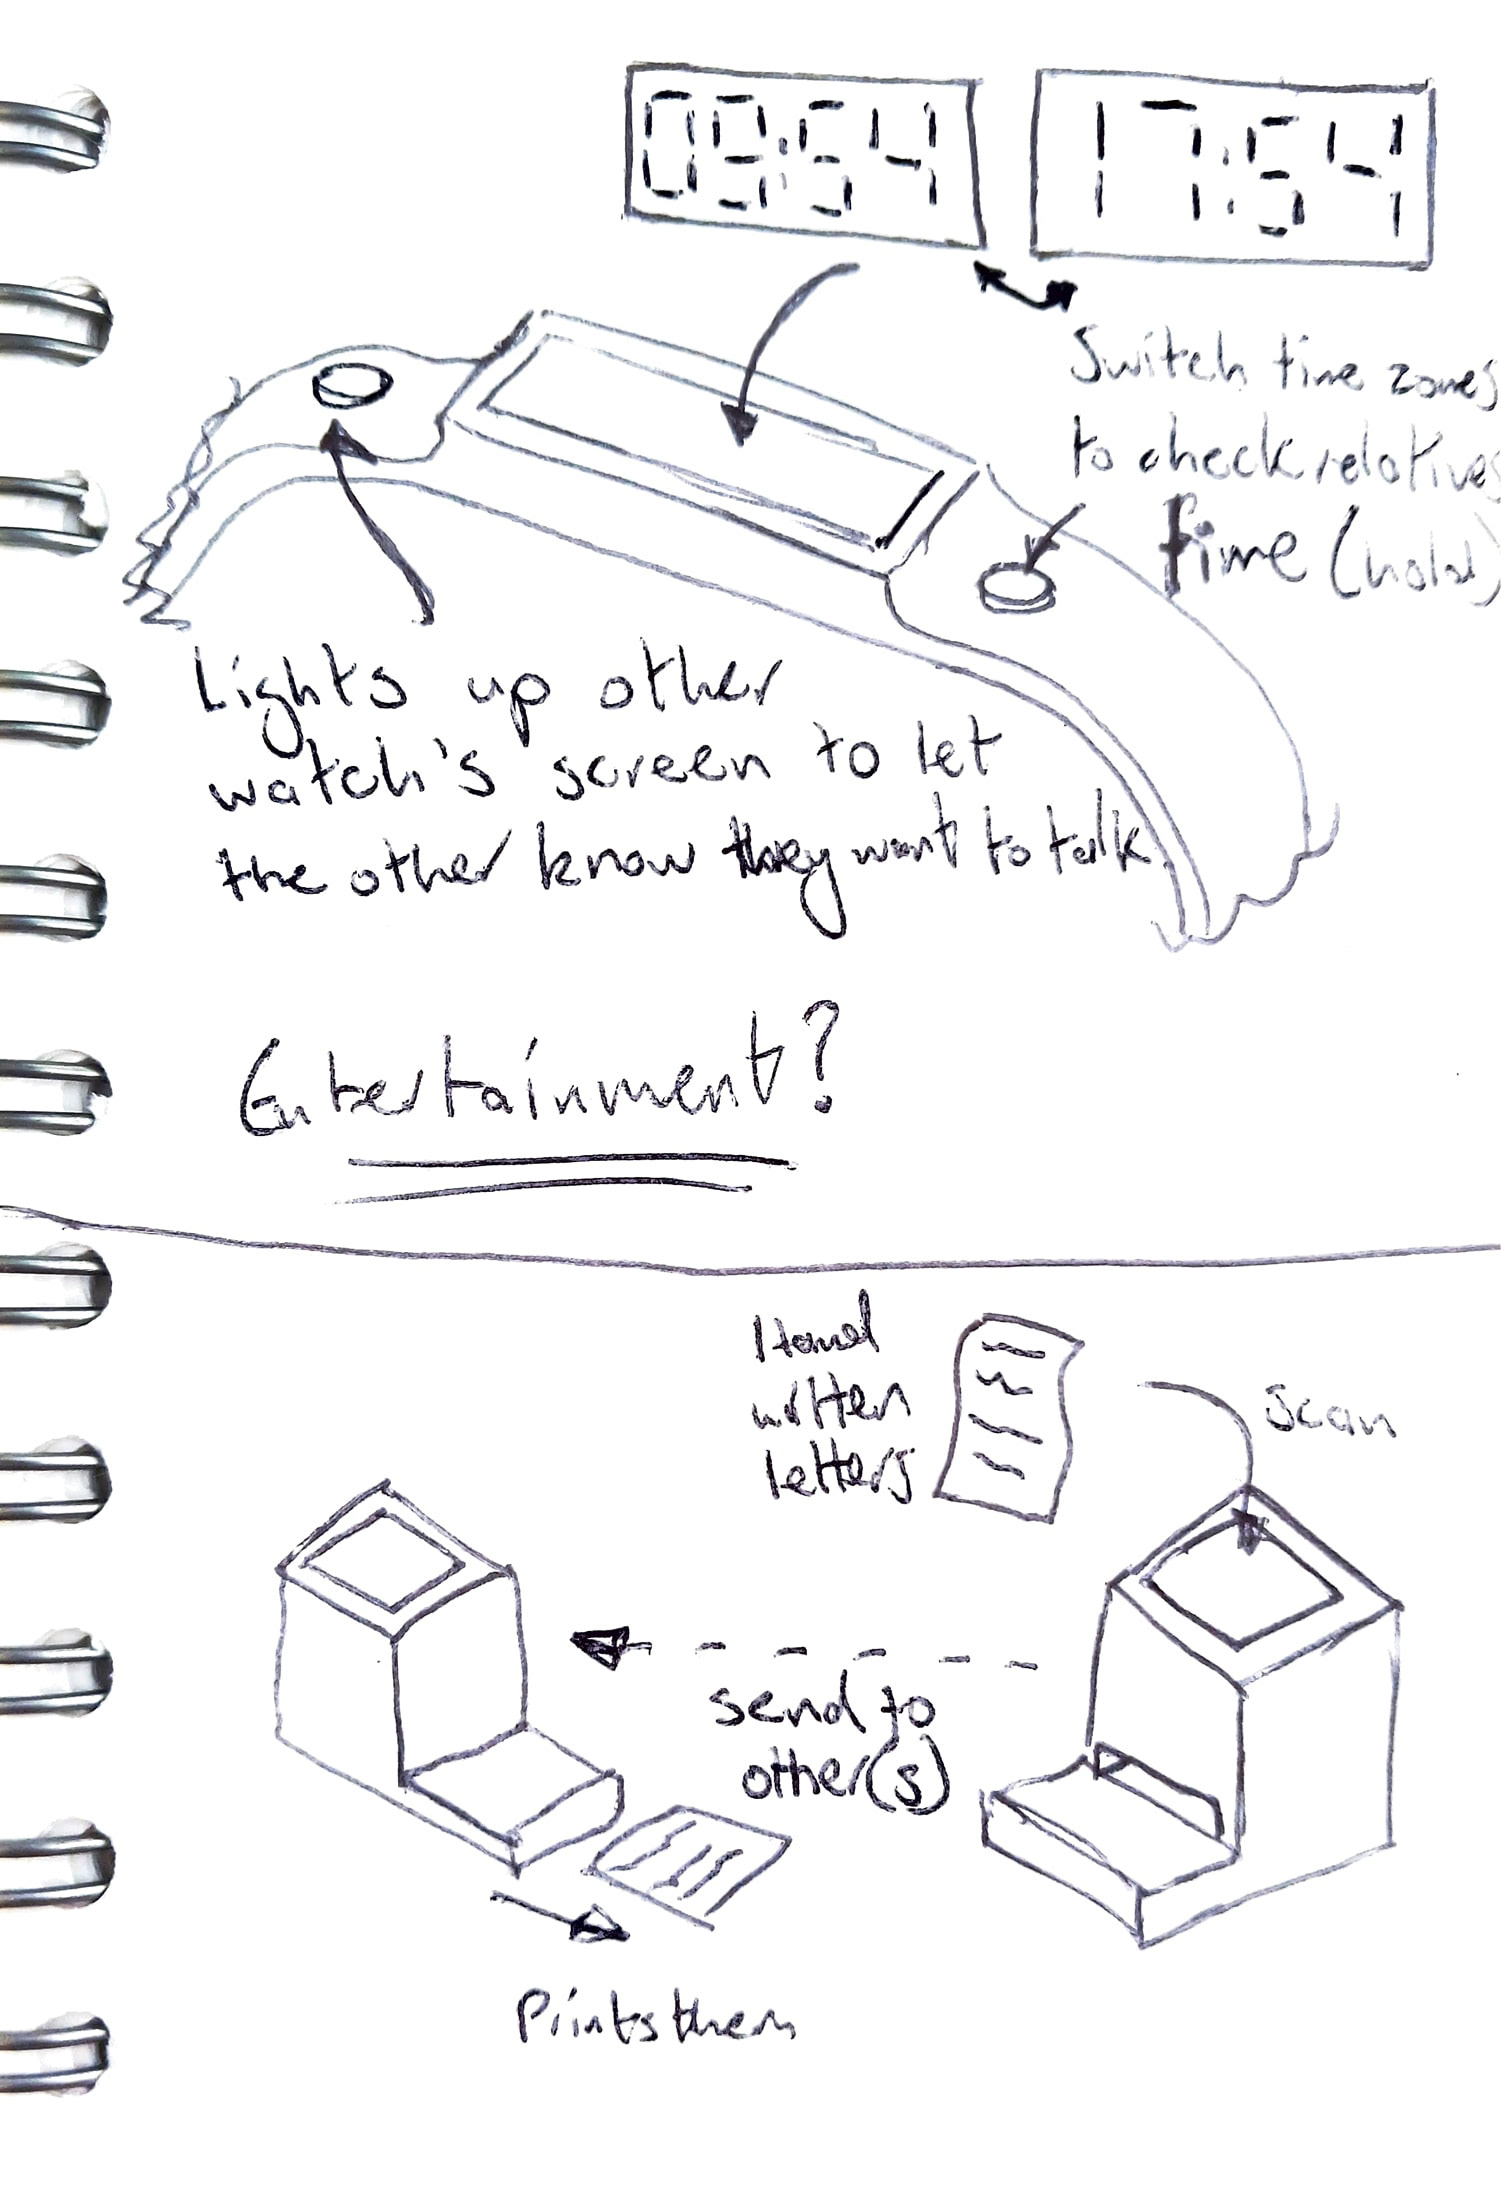 09:54
17:54
Switch time zones
to check relatives
time (hold)
Lights up other
watch's screen to let
the other know they want to talk.
Entertainment?
Hand
written
letters
scan
send to
other(s)
Prints them